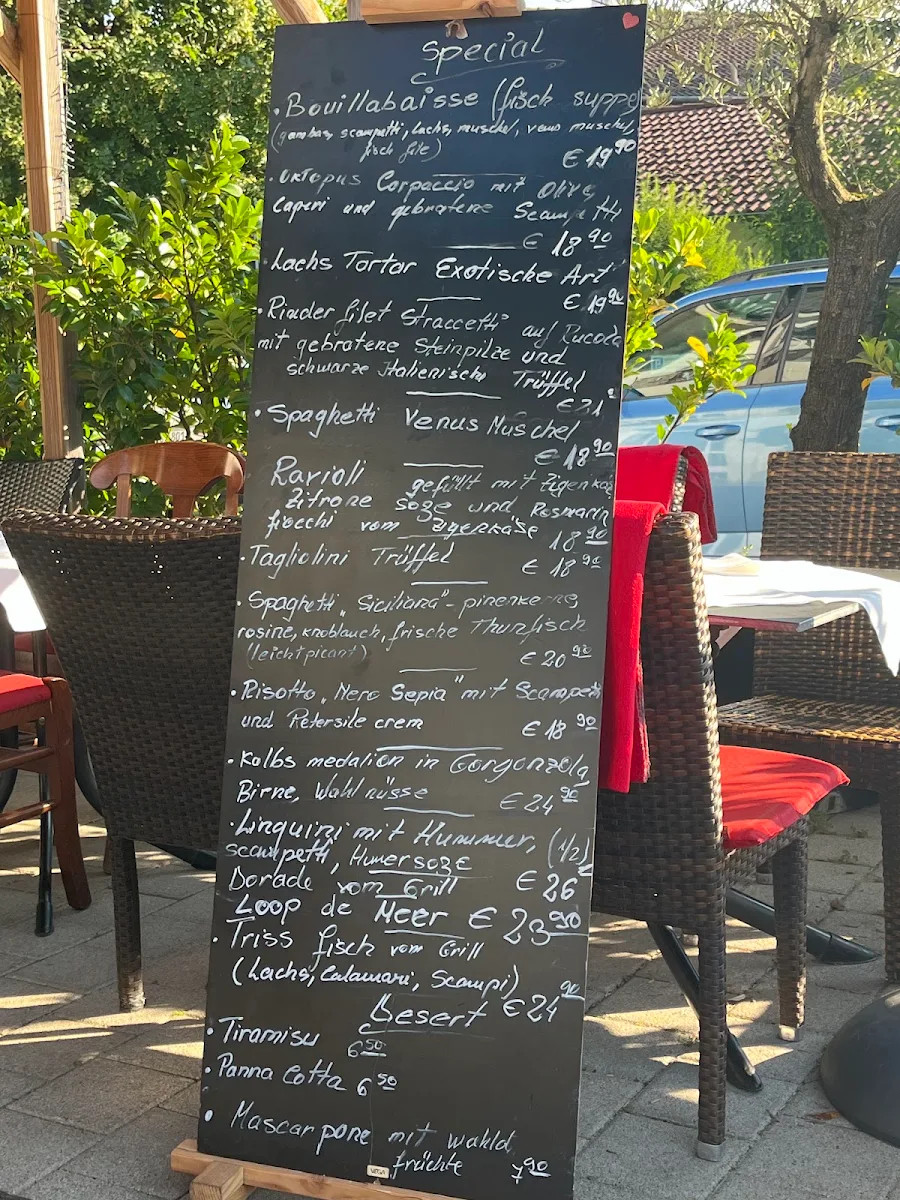 Special
• Bouillabaisse (fisch suppe
(gambas, scampetti, Lachs, muschel, venus muschel,
fisch file)
€ 19 90
• Oktopus Corpaccio mit Olive,
Caperi und gebratene Scampetti
€ 18 90
• Lachs Tortar Exotische Art
€ 19 90
• Rinder filet Straccetti" auf Rucola
mit gebratene Steinpilze und
schwarze Italienische Trüffel
€ 21
• Spaghetti Venus Muschel
€ 18 90
Ravioli gefüllt mit Zigenkäse
Zitrone soze und Rosmarin
fiocchi vom Zigenkäse
18 90
• Tagliolini Trüffel € 18 90
• Spaghetti „Siciliana" - pinenkerne,
rosine, knoblauch, frische Thunfisch
(leicht picant) € 20 90
• Risotto „Nero Sepia" mit Scampetti
und Petersile crem € 18 90
• Kalbs medalion in Gorgonzola
Birne, Wahl nüsse € 24 90
• Linguini mit Hummer, (1/2)
scampetti, Humersoze
€ 26
Dorade vom Grill
Loop de Meer € 23 90
• Triss fisch vom Grill
(Lachs, Calamari, Scampi)
€ 24 90
Desert
• Tiramisu 6 50
• Panna Cotta 6 50
• Mascarpone mit wahld
früchte 7 90
VEGA